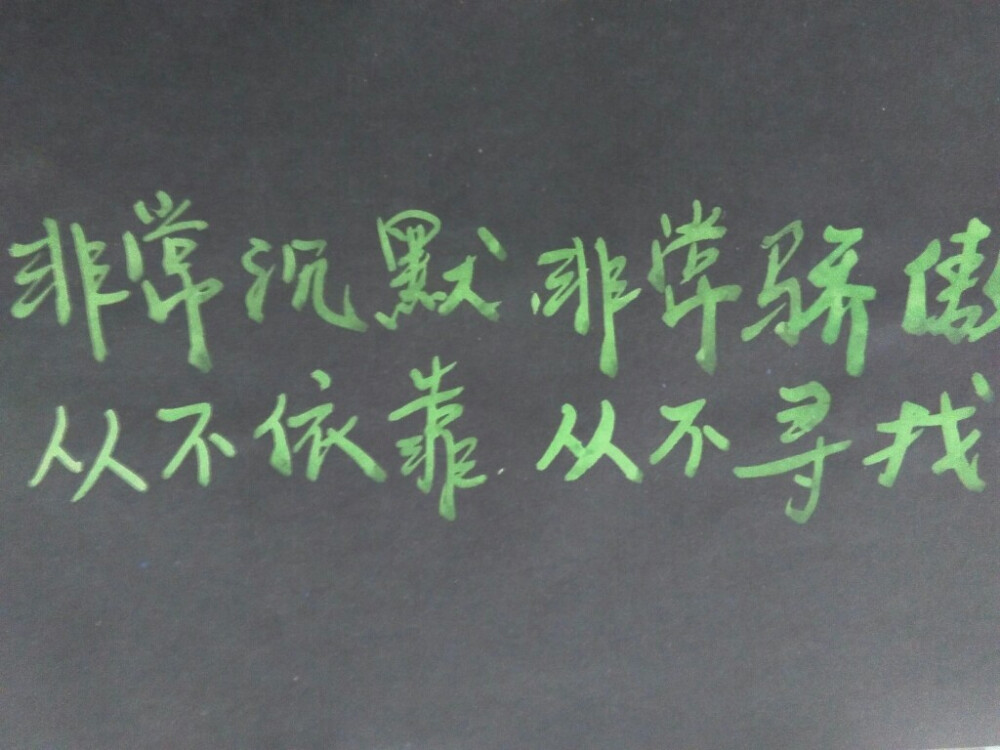 非常沉默 非常骄傲
从不依靠 从不寻找